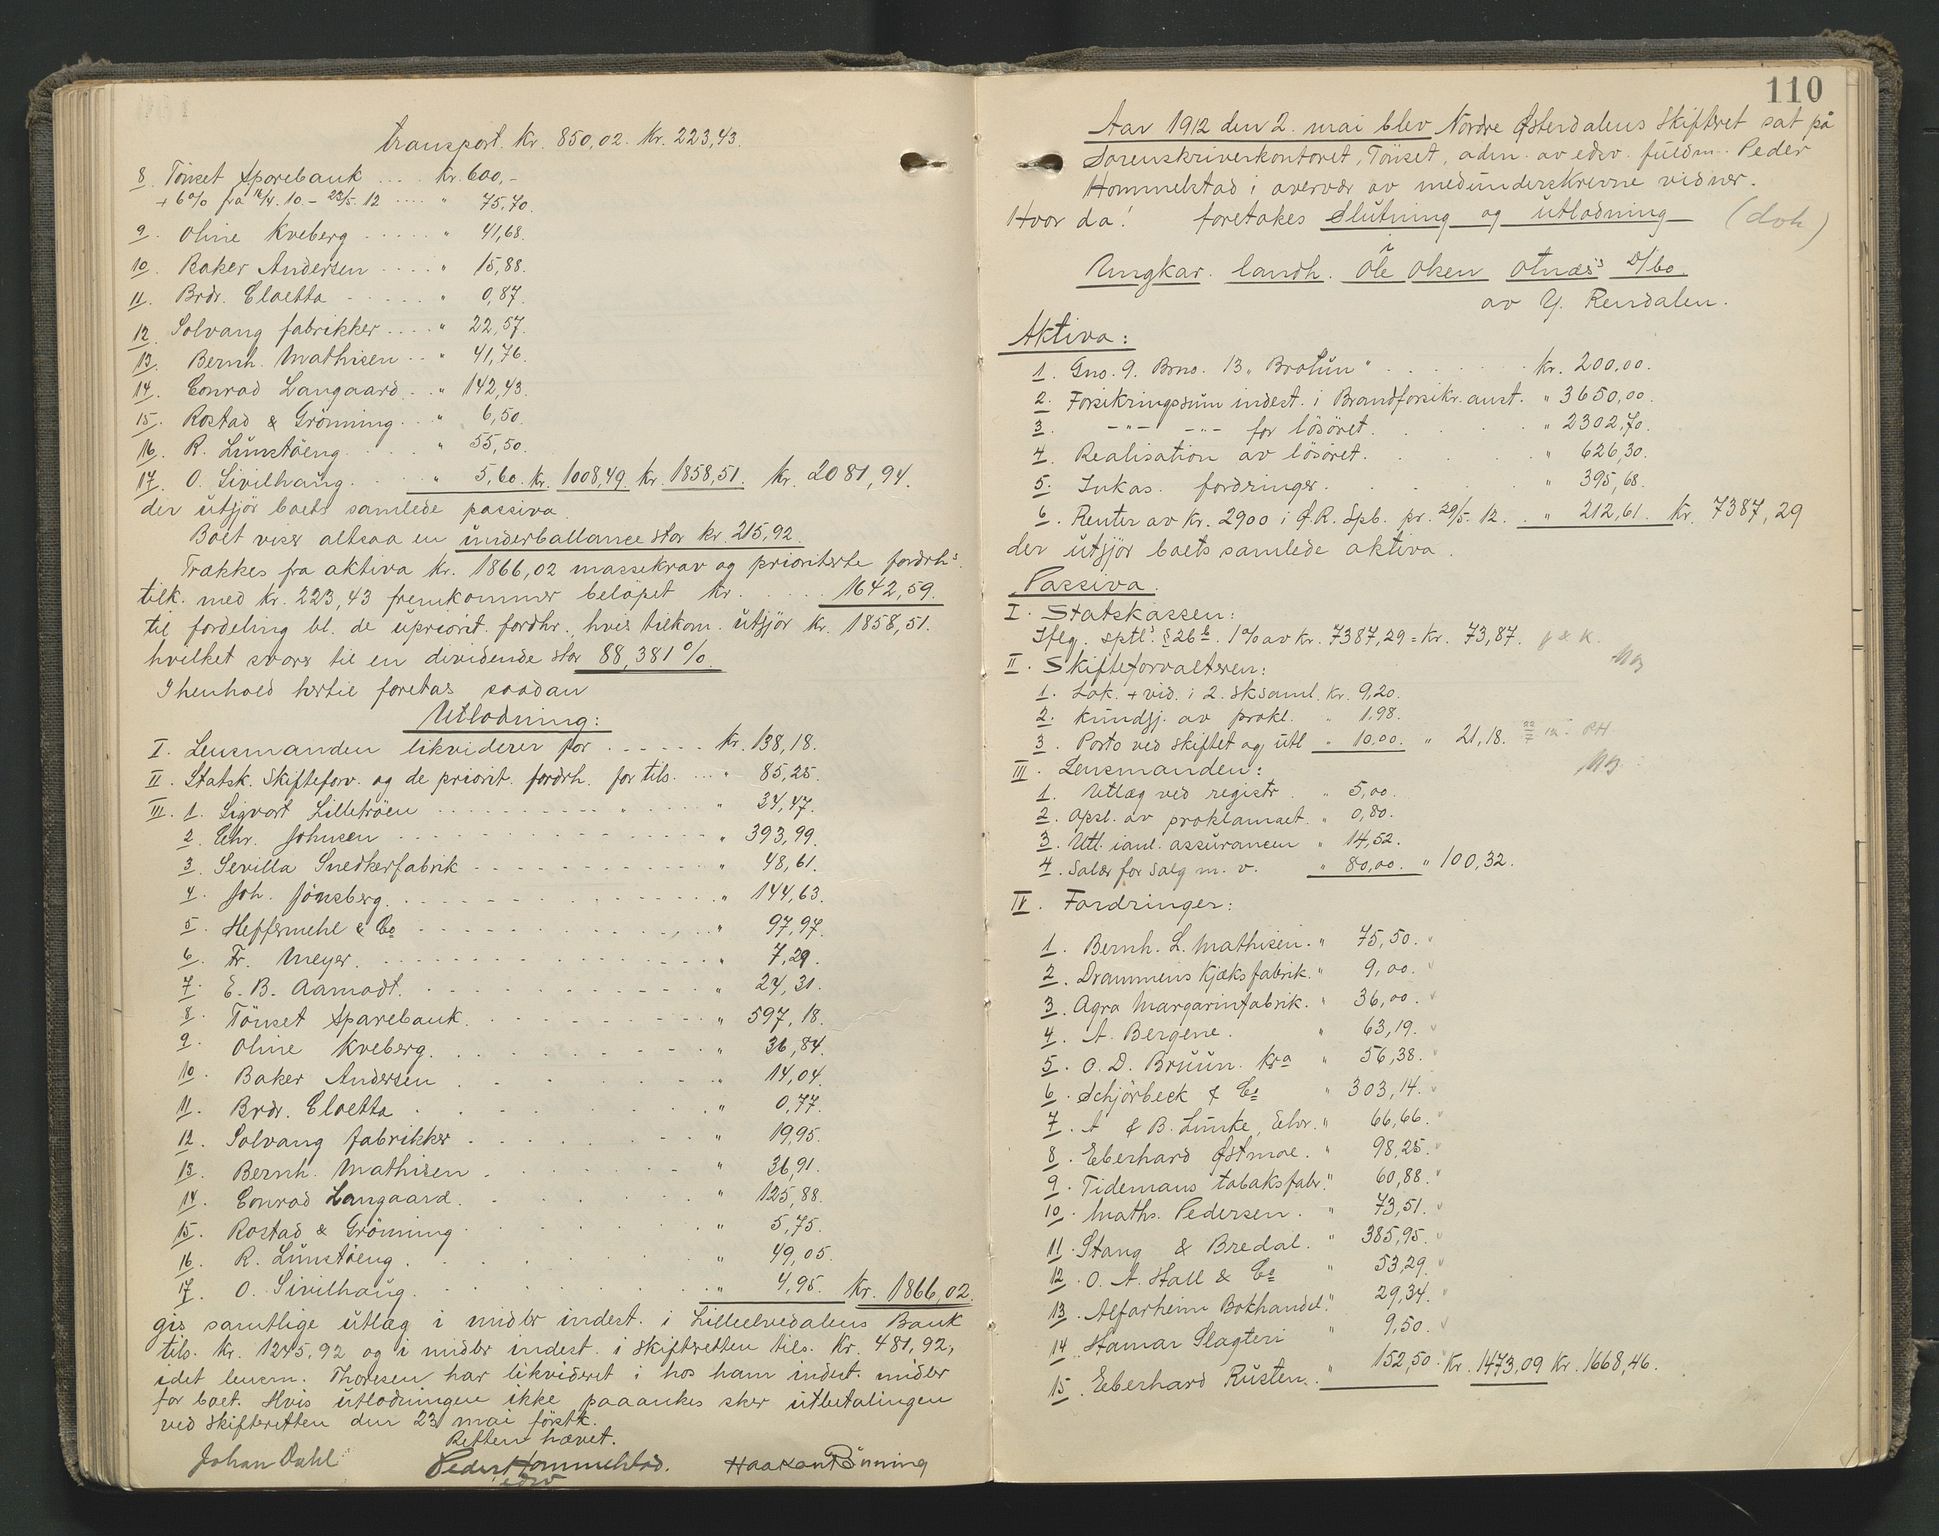 Transport. Kr. 850,02. Kr. 223,43.
8. Tönset Sparebank .... kr. 600,-
+ 6% fra 16/4. 10 - 23/5. 12 .... " 75,70.
9. Oline Kveberg ..... " 41,68.
10. Baker Andersen .... " 15,88.
11. Brdr. Cloetta ..... " 0,87.
12. Solvang fabrikker .... " 22,57.
13. Bernh. Mathisen ... " 41,76.
14. Conrad Langaard ... " 142,43.
15. Rostad & Grönning ... " 6,50.
16. R. Lunstöeng ..... " 55,50.
17. O. Sivilhaug ..... " 5,60. Kr. 1008,49. Kr. 1858,51. Kr. 2081,94.
der utgjör boets samlede passiva.
Boet viser altsaa en underballance stor kr. 215,92.
Trækkes fra aktiva kr. 1866,02 massekrav og prioriterte fordrh.s
tilk. med Kr. 223,43 fremkommer belöpet kr. .... 1642,59.
til fordeling bl. de uprioit. fordhr., hvis tilkom. utgjör Kr. 1858,51.
hvilket svarer til en dividende stor 88,381%.
I henhold hertil foretas saadan
Utlodning:
I. Lensmanden likviderer for ...... Kr. 138,18.
II. Statsk. Skifteforv. og de priorit. fordrh. for tils. ... " 85,25.
III. 1. Sigvart Lilletröen ..... " 34,47.
2. Chr. Johnsen ..... " 393,99.
3. Sevilla Snedkerfabrik ..... " 48,61.
4. Joh. Jönsberg ..... " 144,63.
5. Heffermehl & Co ..... " 97,97.
6. Fr. Meyer ..... " 7,29.
7. E. B. Aamodt ..... " 24,31.
8. Tönset Sparebank ..... " 597,18.
9. Oline Kveberg ..... " 36,84.
10. Baker Andersen ..... " 14,04.
11. Brdr. Cloetta ..... " 0,77.
12. Solvang fabrikker ..... " 19,95.
13. Bernh. Mathisen ..... " 36,91.
14. Conrad Langaard ..... " 125,88.
15. Rostad & Grönning ..... " 5,75.
16. R. Lunstöeng ..... " 49,05.
17. O. Sivilhaug ..... " 4,95. Kr. 1866,02.
gis samtlige utlæg i midler indest. i Lilleelvedalens Bank
tils. kr. 1245,92 og i midler indest. i skifteretten tils. kr. 481,92,
idet lensm. Thoresen har likvideret i hos ham indest. midler
for boet. Hvis utlodningen ikke paaankes sker utbetalingen
ved skifteretten den 23 mai förstk.
Retten hævet.
Johan Dahl Peder Hommelstad. Haakon Rönning
edsv
110
Aar 1912 den 2. mai blev Nordre Østerdalens Skifteret sat på
Sorenskriverkontoret, Tönset, adm. av edsv. fuldm. Peder
Hommelstad i overvær av medunderskrevne vidner.
Hvor da! foretakes Slutning og utlodning (doh)
i
Ungkar. landh. Ole Olsen Otnæs's D/bo.
av Y. Rendalen.
Aktiva:
1. Gno. 9. Brno. 13 "Brotun" ..... kr. 200,00.
2. Forsikringssum indest. i Brandforsikr. anst. " 3650,00.
3. -"- -"- for lösöret ..... " 2302,70.
4. Realisation av lösöret ..... " 626,30.
5. Inkas. fordringer ..... " 395,68.
6. Renter av kr. 2900 i Ø.R. Spb. pr. 29/5. 12 .. " 212,61. Kr. 7387,29
der utgjör boets samlede aktiva.
Passiva.
I. Statskassen:
Ifög. sptl. § 26 b. 1% av Kr. 7387,29 = Kr. 73,87.
II. Skifteforvalteren:
1. Lok. + vid. i 2. sksaml. Kr. 9,20.
2. Kundgj. av prokl. " 1,98.
3. Porto ved skiftet og utl " 10,00. " 21,18.
III. Lensmanden:
1. Utlæg ved registr. " 5,00.
2. Opsl. av proklamaet. " 0,80.
3. Utl. i anl. assurancen " 14,52.
4. Salær for salg m. v. " 80,00. " 100,32.
IV. Fordringer:
1. Bernh. L. Mathisen. " 75,50.
2. Drammens Kjæksfabrik. " 9,00.
3. Agra Margarinfabrik. " 36,00.
4. A. Bergene. " 63,19.
5. O. D. Bruun. Kra " 56,38.
6. Schjörbeck & Co " 303,14.
7. A & B. Lunke, Elvr. " 66,66.
8. Eberhard Östmoe. " 98,25.
9. Tidemans tobaksfabr. " 60,88.
10. Maths. Pedersen. " 73,51.
11. Stang & Bredal. " 385,95.
12. O. A. Hall & Co " 53,29.
13. Alfarheim Bokhandel. " 29,34.
14. Hamar Slagteri " 9,50.
15. Eberhard Rusten. " 152,50. Kr. 1473,09 Kr. 1668,46.